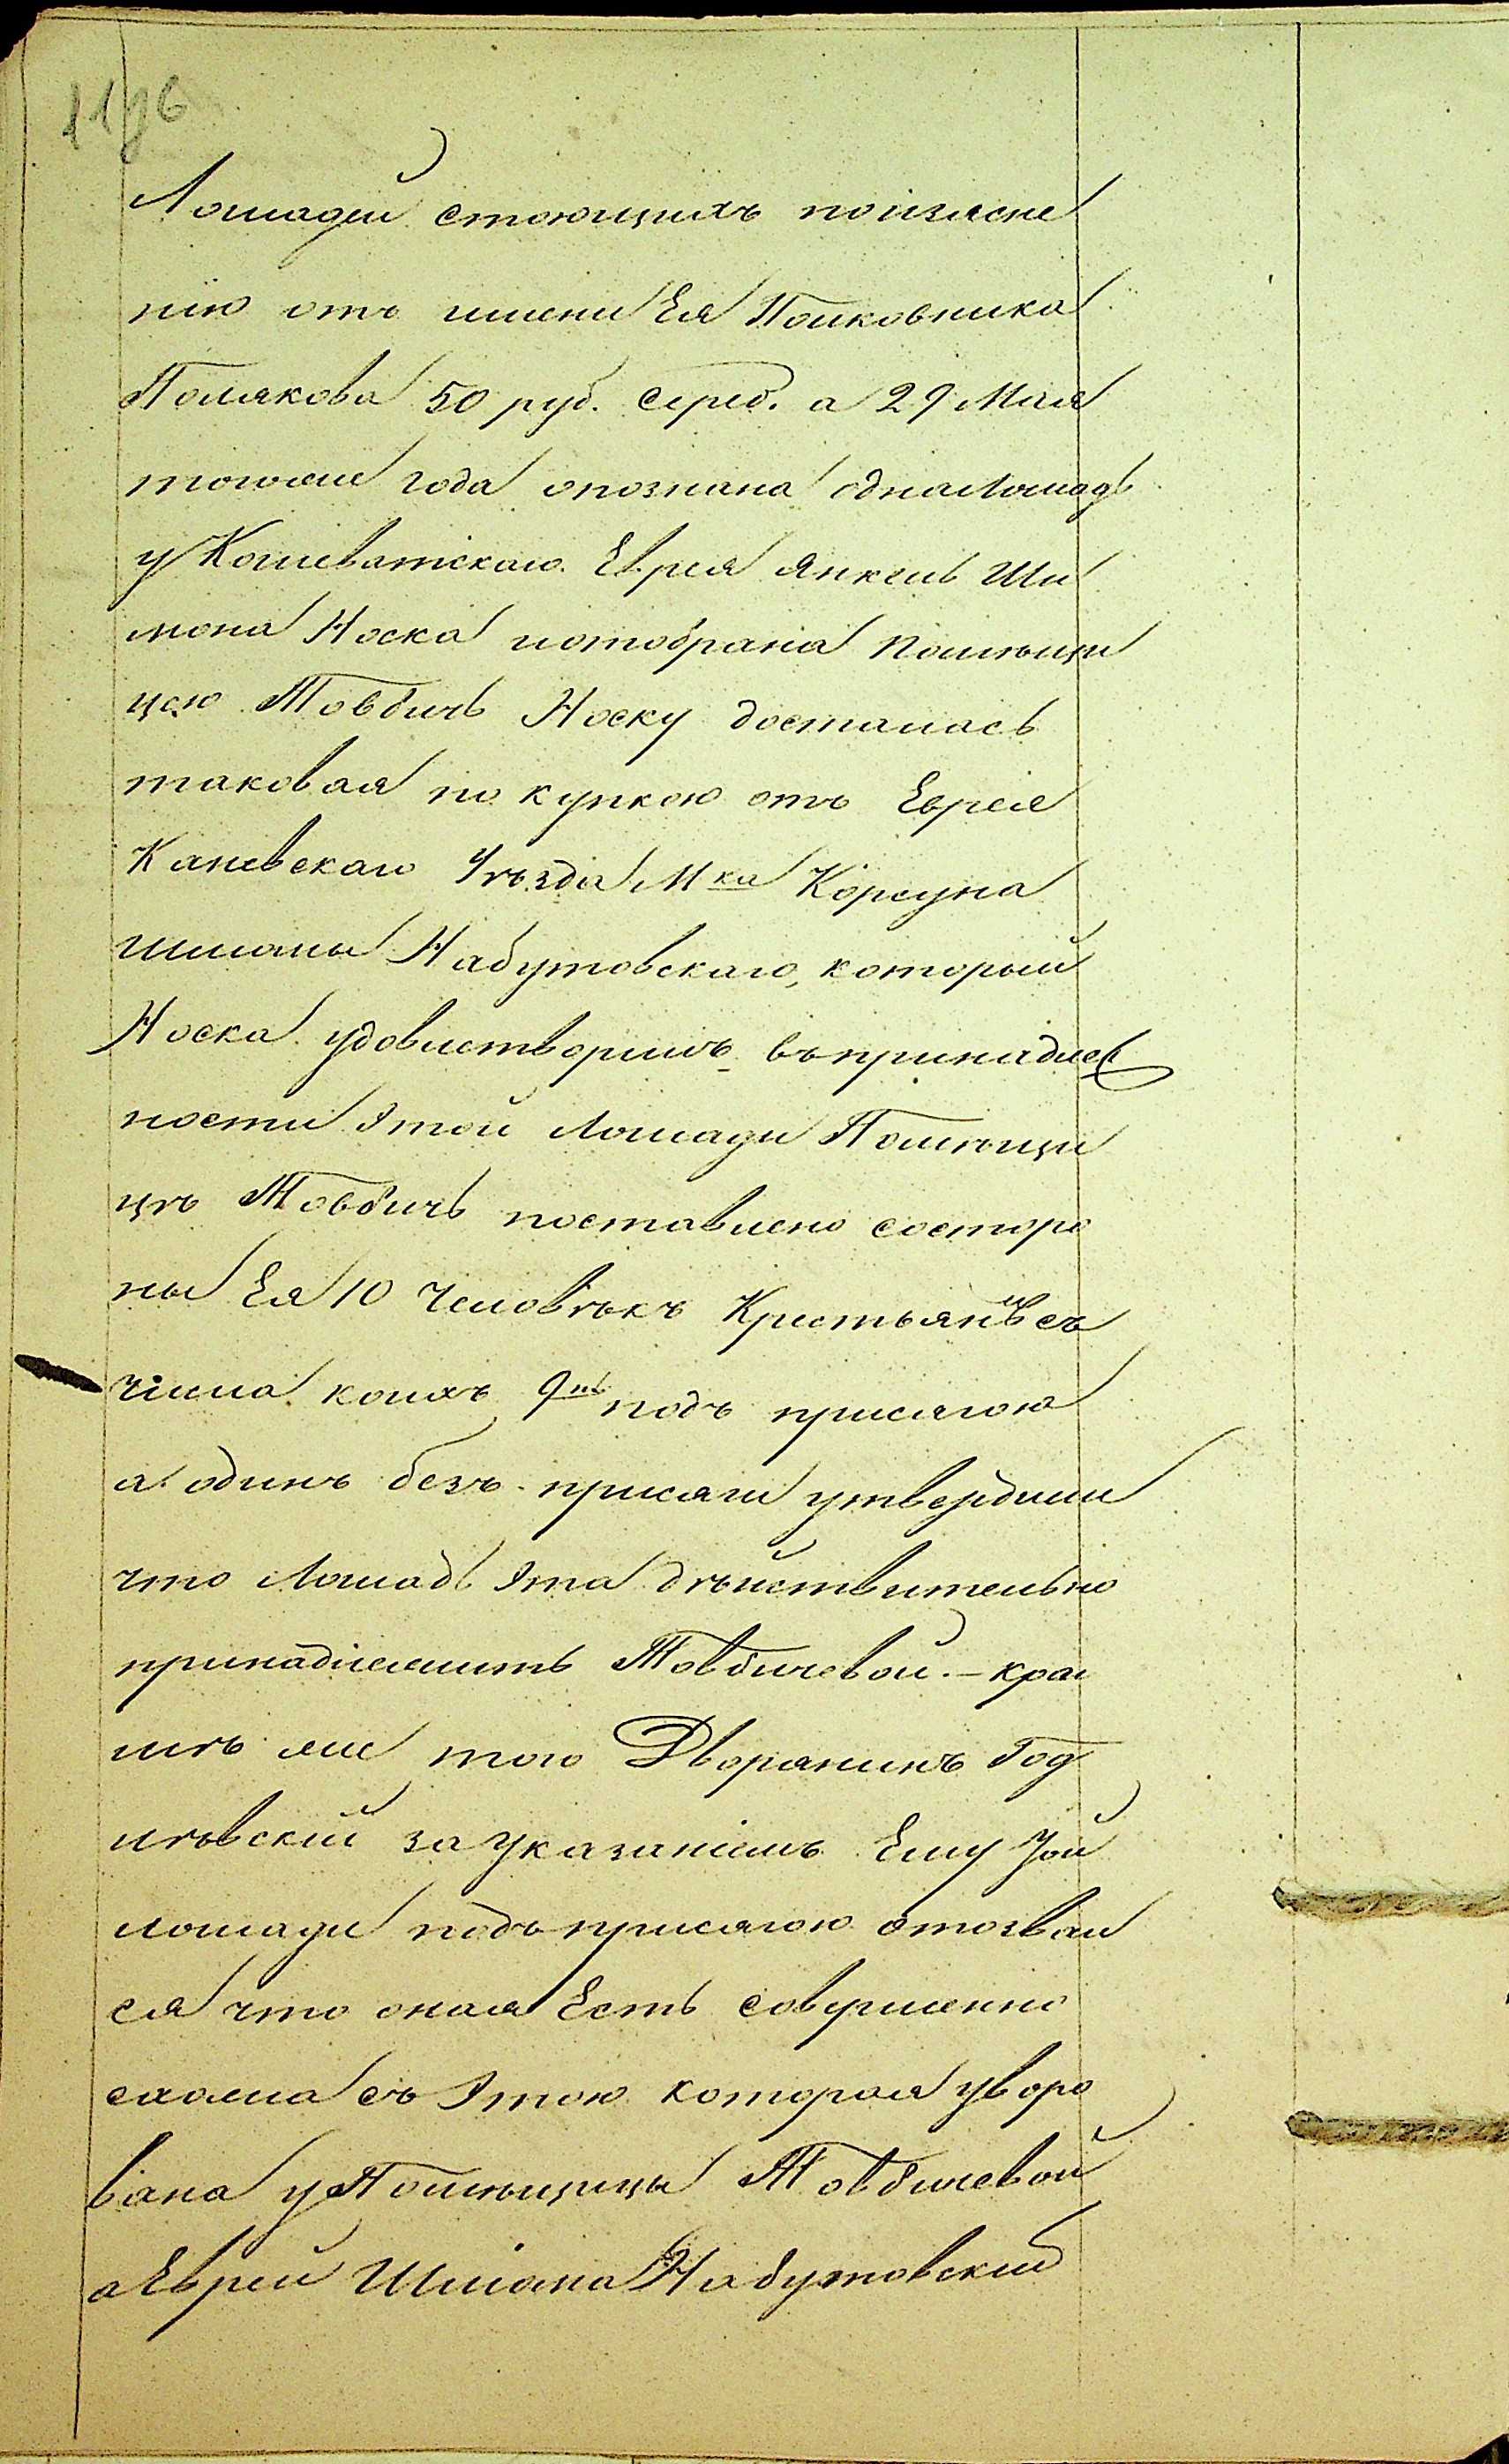 11об
Лошадей стоющихъ поизясне
нію отъ имени Ея Полковника
Полякова 50 руб. Сереб. а 29 Мая
тогоже года опознана одналошадь
у Кошеватскаго Еврея Янкель Ши
мона Носка иотобрана Помѣщи
цею Товбичь Носку досталась
таковая по купкою отъ Еврея
Каневскаго Уѣзда Мка Корсуна
Шліомы Набутовскаго, который
Носка удовлетворилъ въпринадлеж
ности Этой Лошади Помѣщи
цѣ Товбичь поставлено состоро
ны Ея 10 человѣкъ Крестьянъ съ
числа коихъ 9ть подъ присягою
а одинъ безъ присяги утвердили
что Лошадь Эта дѣйствительно
принадлежитъ Товбичевой. – кро
мѣ же того Дворянинъ Год
лѣвскій за указаніемъ Ему
лошади подъ присягою отозвал
ся что оная Есть совершенно
схожа съ Этою которая уворо
вана у Помѣщицы Товбичевой
а Еврей Шліома Набутовскій